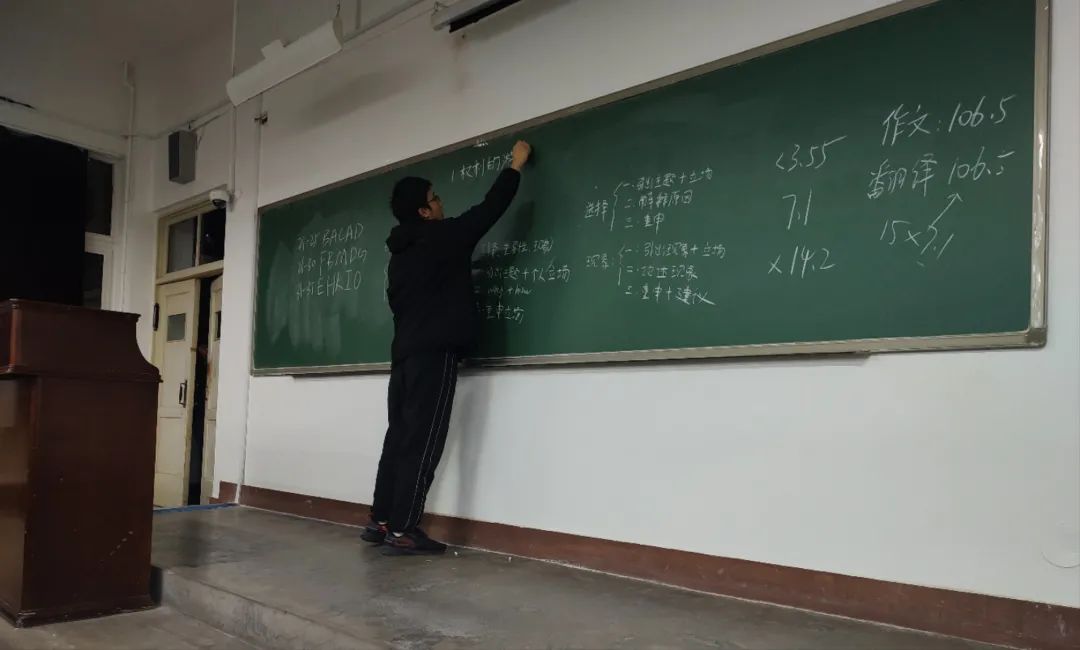 1 权利的
26-25 BACAD
26-30 FBMDG
31-35 EHKIO
一 引出主题+个人立场
二 why + how
三 重申立场
选择
一:引出主题+立场
二:解释原因
三:重申
现象:
一:引出现象+立场
二:论述现象
三:重申+建议
<3.55
7.1
×14.2
作文:106.5
翻译 106.5
15×7.1